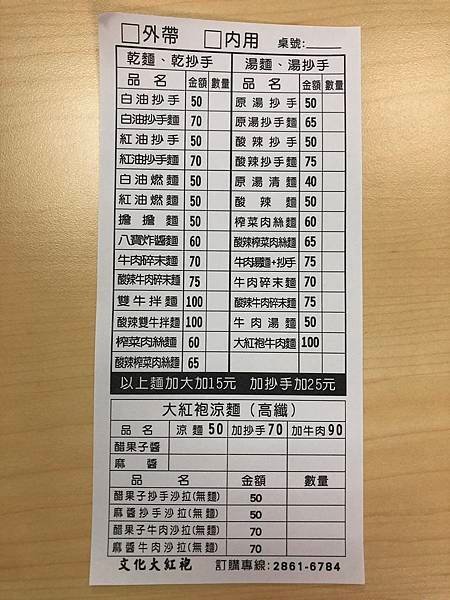 □外帶 □內用 桌號:
乾麵、乾抄手 湯麵、湯抄手
品名 金額 數量 品名 金額 數量
白油抄手 50 原湯抄手 50
白油抄手麵 70 原湯抄手麵 65
紅油抄手 50 酸辣抄手 50
紅油抄手麵 70 酸辣抄手麵 75
白油燃麵 50 原湯清麵 40
紅油燃麵 50 酸辣麵 50
擔擔麵 50 榨菜肉絲麵 60
八寶炸醬麵 60 酸辣榨菜肉絲麵 65
牛肉碎末麵 70 牛肉湯麵+抄手 75
酸辣牛肉碎末麵 75 牛肉碎末麵 70
雙牛拌麵 100 酸辣牛肉碎末麵 75
酸辣雙牛拌麵 100 牛肉湯麵 50
榨菜肉絲麵 60 大紅袍牛肉麵 100
酸辣榨菜肉絲麵 65
以上麵加大加15元 加抄手加25元
大紅袍涼麵（高纖）
品名 涼麵50 加抄手70 加牛肉90
醋果子醬
麻醬
品名 金額 數量
醋果子抄手沙拉(無麵) 50
麻醬抄手沙拉(無麵) 50
醋果子牛肉沙拉(無麵) 70
麻醬牛肉沙拉(無麵) 70
文化大紅袍 訂購專線:2861-6784